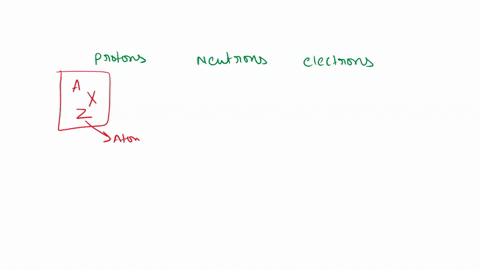 Protons Neutrons electrons
A
X
Z
Atom